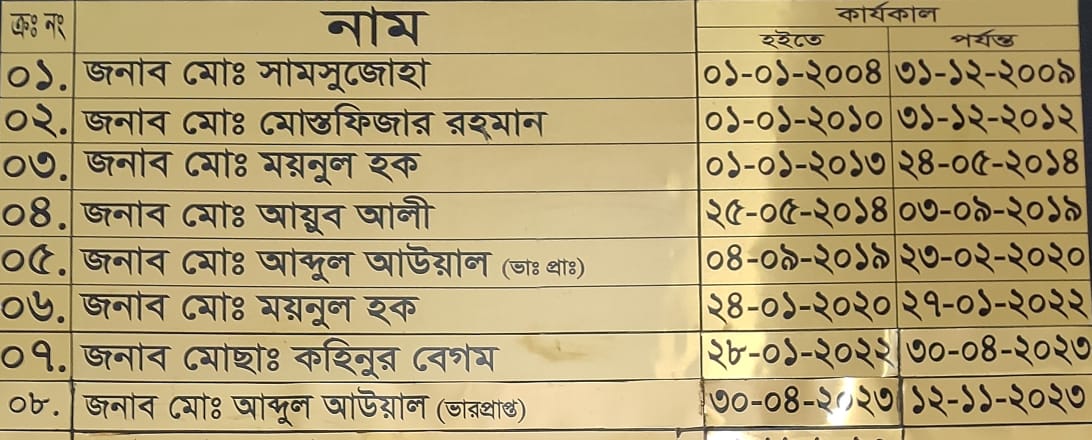 ক্রঃ নং নাম কার্যকাল
হইতে পর্যন্ত
০১. জনাব মোঃ সামসুজোহা ০১-০১-২০০৪ ৩১-১২-২০০৯
০২. জনাব মোঃ মোস্তফিজার রহমান ০১-০১-২০১০ ৩১-১২-২০১২
০৩. জনাব মোঃ ময়নুল হক ০১-০১-২০১৩ ২৪-০৫-২০১৪
০৪. জনাব মোঃ আয়ুব আলী ২৫-০৫-২০১৪ ০৩-০৯-২০১৯
০৫. জনাব মোঃ আব্দুল আউয়াল (ভাঃ প্রাঃ) ০৪-০৯-২০১৯ ২৩-০২-২০২০
০৬. জনাব মোঃ ময়নুল হক ২৪-০১-২০২০ ২৭-০১-২০২২
০৭. জনাব মোছাঃ কহিনুর বেগম ২৮-০১-২০২২ ৩০-০৪-২০২৩
০৮. জনাব মোঃ আব্দুল আউয়াল (ভারপ্রাপ্ত) ৩০-০৪-২০২৩ ১২-১১-২০২৩